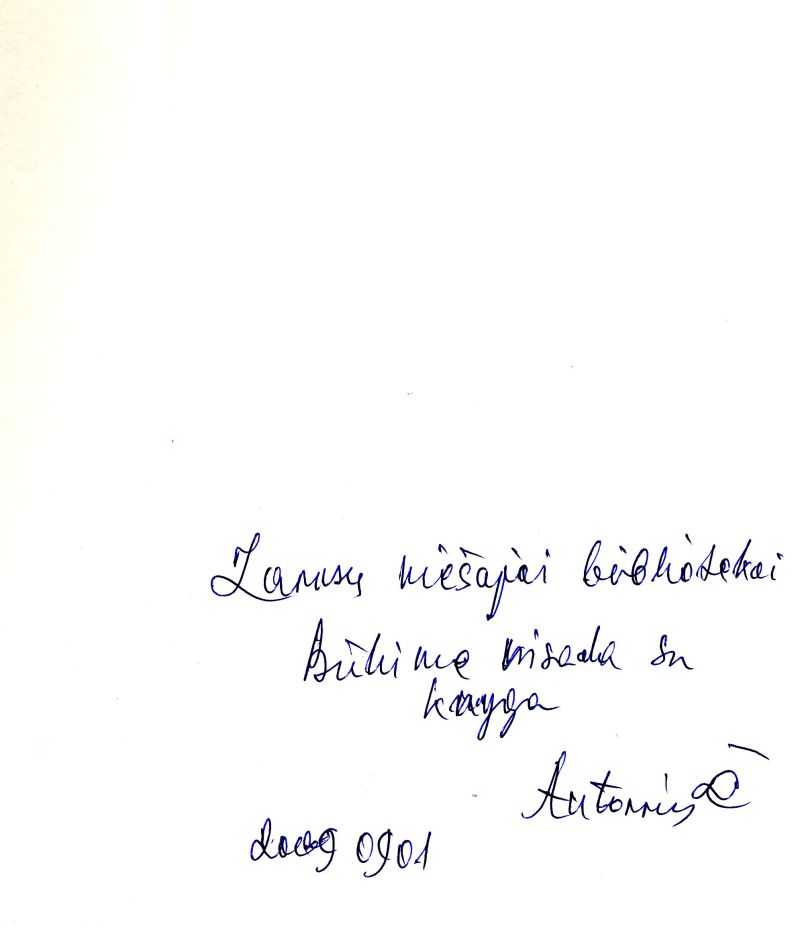 Zarasų viešajai bibliotekai
Būkime visada su
knyga
Antanas
2009 09 01